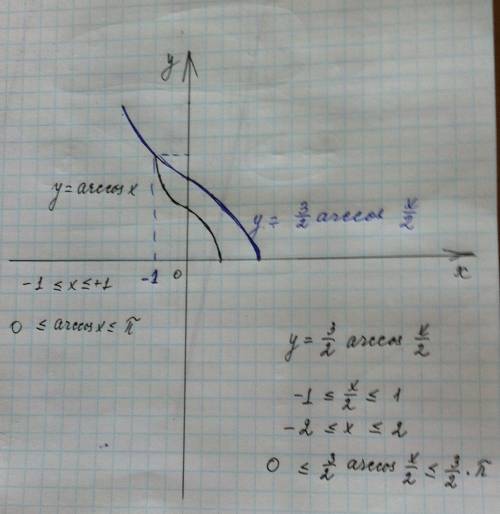 y
y = arccos x
y = 3/2 arccos x/2
-1
0
x
-1 ≤ x ≤ +1
0 ≤ arccos x ≤ π
y = 3/2 arccos x/2
-1 ≤ x/2 ≤ 1
-2 ≤ x ≤ 2
0 ≤ 3/2 arccos x/2 ≤ 3/2 · π